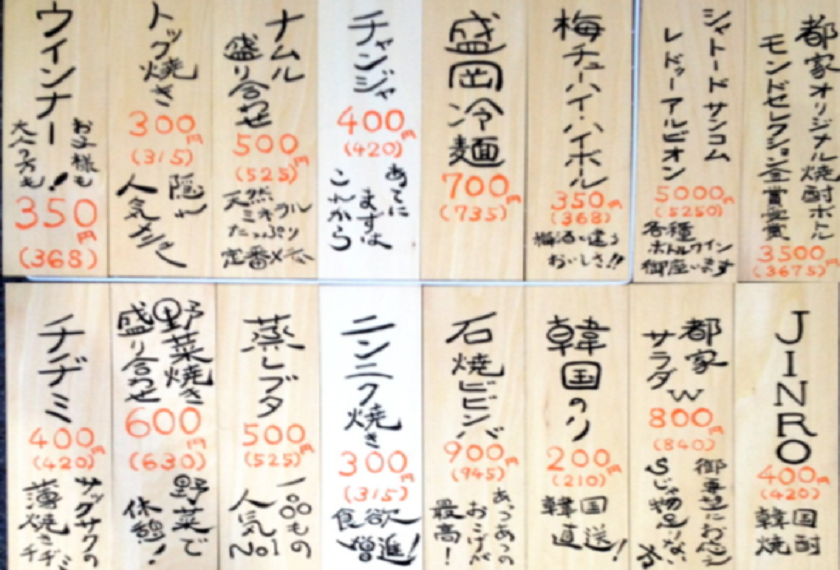 都家オリジナル焼酎ボトル
モンドセレクション金賞受賞
3500円
(3675)
シャトードサンコム
レドゥーアルビオン
5000円
(5250)
各種
ボトルワイン
御座います
梅チューハイ・ハイボール
350円
(368)
梅酒と違う
おいしさ!!
盛岡冷麺
700円
(735)
チャンジャ
400円
(420)
あてに
まずは
これから
ナムル
盛り合わせ
500円
(525)
天然
ミネラル
たっぷり
定番メニュー
トック焼き
300円
(315)
隠れ
人気メニュー
ウィンナー
お子様も
大人の方も!
350円
(368)
JINRO
400円
(420)
韓国
焼酎
都家
サラダW
800円
(840)
御要望にお応え
Sじゃ物足りない方
韓国のり
200円
(210)
韓国
直送!
石焼ビビンバ
900円
(945)
あつあつの
おこげが
最高!
ニンニク焼き
300円
(315)
食欲
増進!
蒸しブタ
500円
(525)
一品もの
人気No1
野菜焼き
盛り合わせ
600円
(630)
野菜で
休憩!
チヂミ
400円
(420)
サックサクの
薄焼きチヂミ